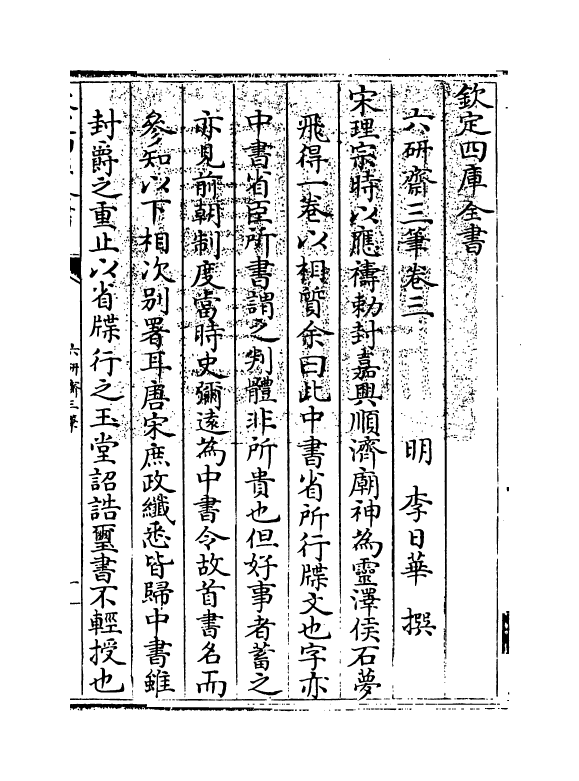 欽定四庫全書
六研齋三筆卷三
明 李日華 撰
宋理宗時以應禱勅封嘉興順濟廟神為靈澤侯石夢
飛得一卷以相質余曰此中書省所行牒文也字亦
中書省臣所書謂之判體非所貴也但好事者蓄之
亦見前朝制度當時史彌遠為中書令故首書名而
參知以下相次别署耳唐宋庶政纖悉皆歸中書雖
封爵之重止以省牒行之玉堂詔誥璽書不輕授也
六研齋三筆